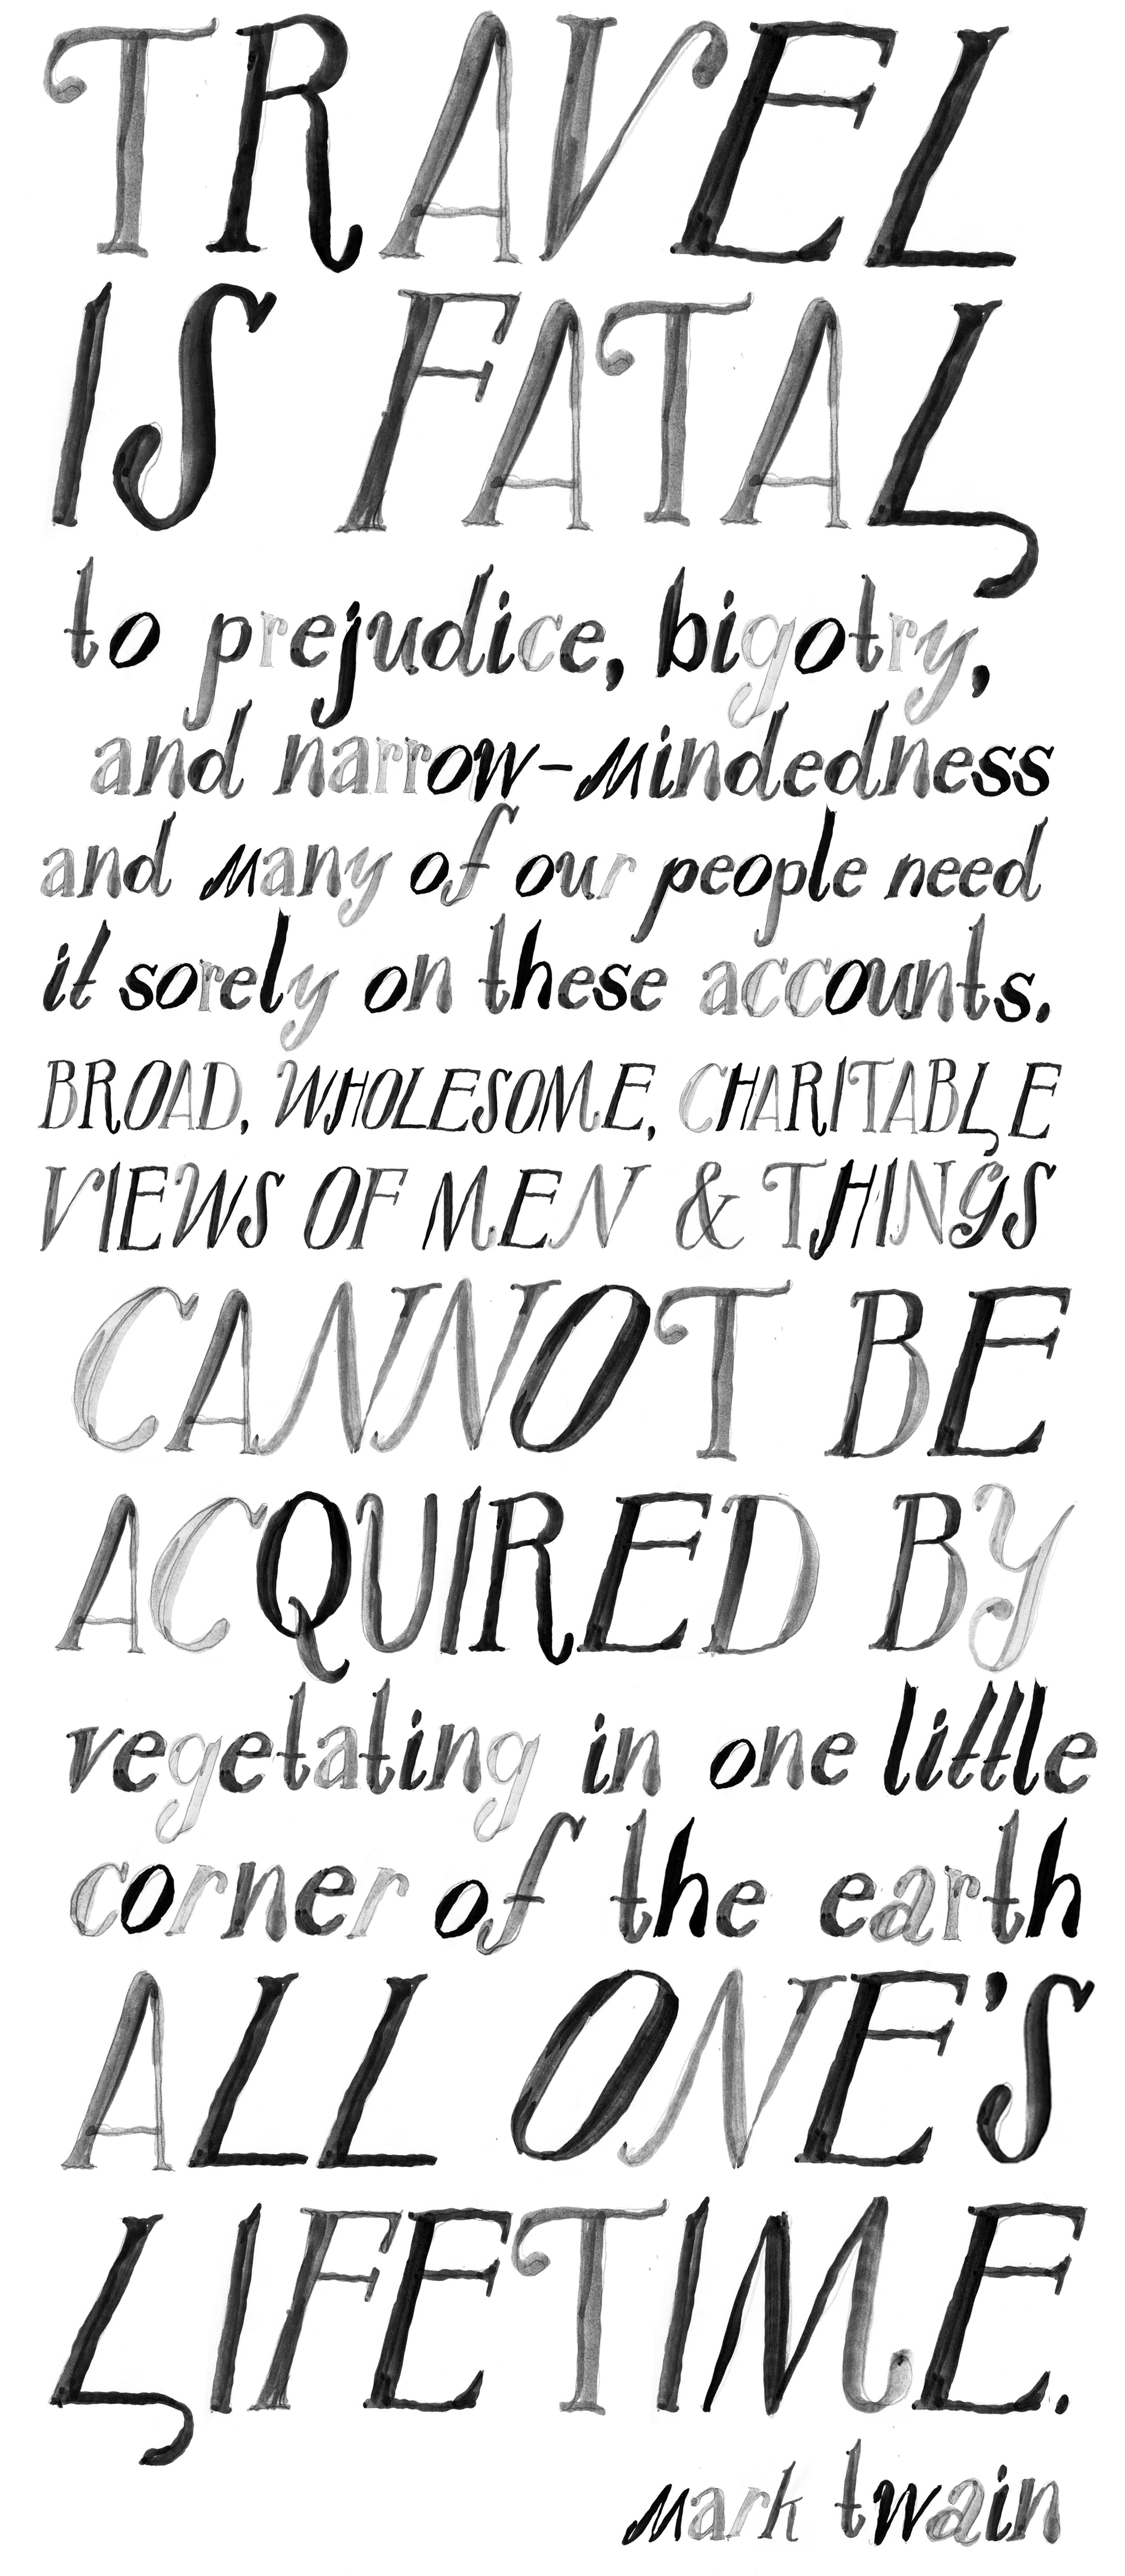 TRAVEL
IS FATAL
to prejudice, bigotry,
and narrow-mindedness
and many of our people need
it sorely on these accounts.
BROAD, WHOLESOME, CHARITABLE
VIEWS OF MEN & THINGS
CANNOT BE
ACQUIRED BY
vegetating in one little
corner of the earth
ALL ONE'S
LIFETIME.
mark twain